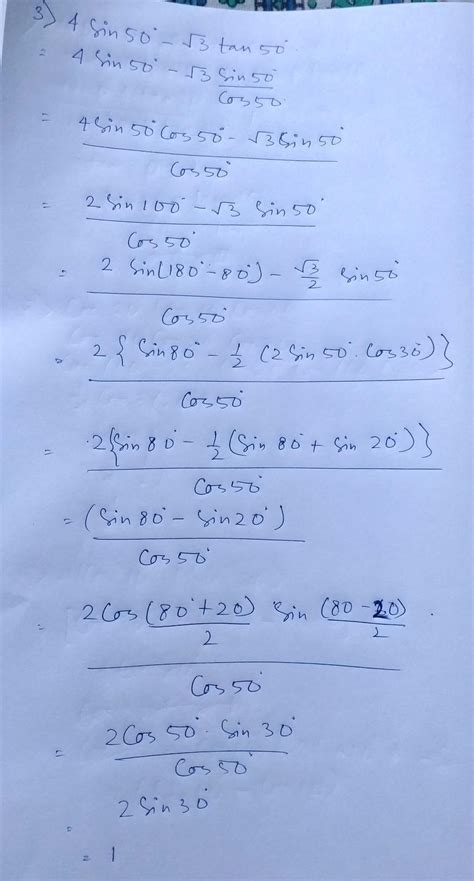 3) 4 Sin 50° - √3 tan 50°.
= 4 Sin 50° - √3 Sin 50° / Cos 50.
= 4 Sin 50° Cos 50° - √3 Sin 50° / Cos 50°
= 2 Sin 100° - √3 Sin 50° / Cos 50°
= 2 Sin(180° - 80°) - √3/2 Sin 50° / Cos 50°
= 2 { Sin 80° - 1/2 (2 Sin 50°. Cos 30°)} / Cos 50°
= 2{Sin 80° - 1/2 (Sin 80° + Sin 20°)} / Cos 50°
= (Sin 80° - Sin 20°) / Cos 50°
= 2 Cos (80° + 20)/2 Sin (80 - 20)/2 / Cos 50°
= 2 Cos 50°. Sin 30° / Cos 50°
= 2 Sin 30°
= 1